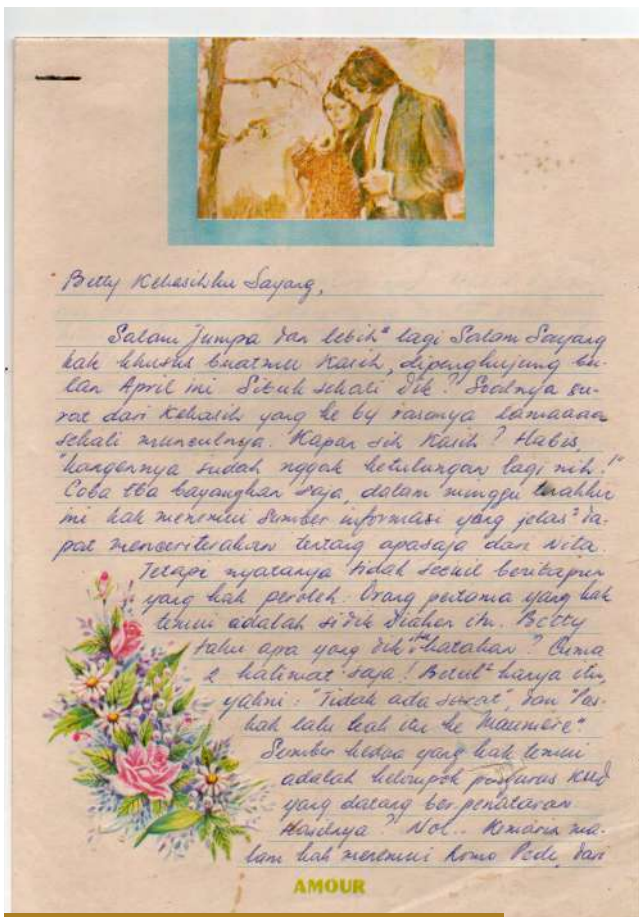 Betty Kekasihku Sayang,
Salam Jumpa dan lebih² lagi Salam Sayang
kak khusus buatmu Kasih, dipenghujung bu-
lan April ini. Sibuk sekali dik? Soalnya su-
rat dari Kekasih yang ke by rasanya lamaaaa
sekali munculnya. Kapan sih Kasih? Habis,
"kangennya sudah nggak ketulungan lagi nih!"
Coba tba bayangkan saja, dalam minggu terakhir
ini kak menemui sumber informasi yang jelas² da-
pat menceriterakan tentang apasaja dari Nita.
Tetapi nyatanya tidak secuil beritapun
yang kak peroleh. Orang pertama yang kak
temui adalah si dik itu. Betty
tahu apa yang dik itu katakan? Cuma
2 kalimat saja! Betul² hanya itu,
yakni: "Tidak ada surat", dan "Pas-
kah lalu kak itu ke Maumere".
Sumber kedua yang kak temui
adalah kelompok pengurus KUD
yang datang berpenataran.
Hasilnya? Nol.. Kemarin ma-
lam kak menemui Romo Pede, dari
AMOUR